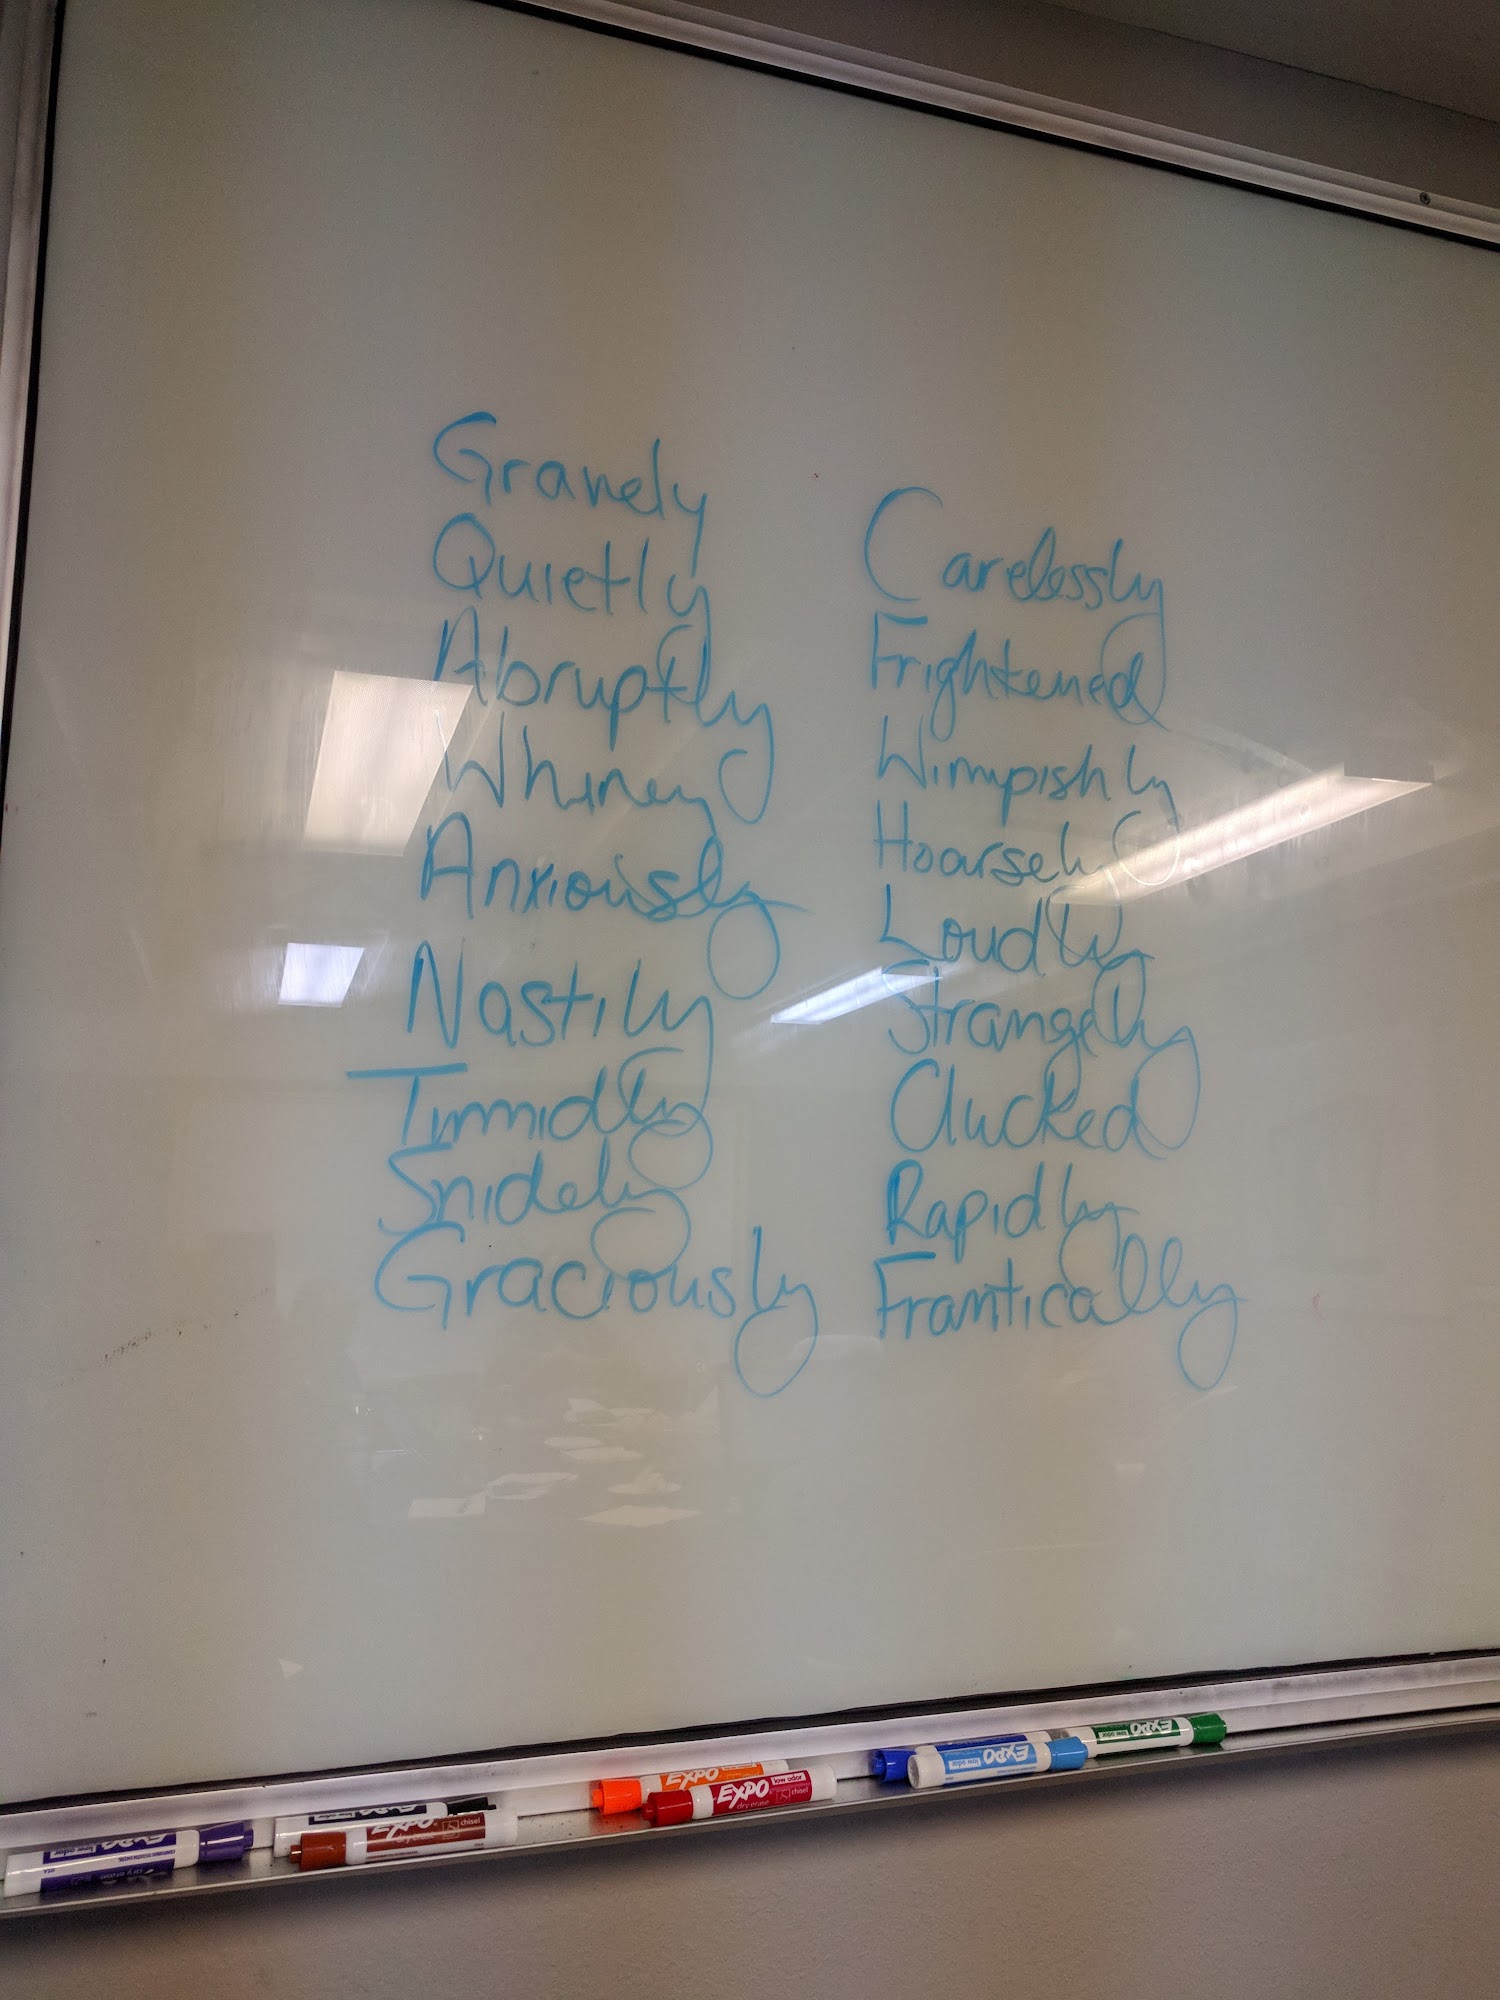 Gravely
Quietly
Abruptly
Whiney
Anxiously
Nastily
Timidly
Snidely
Graciously
Carelessly
Frightened
Wimpishly
Hoarsely
Loudly
Strangely
Clucked
Rapidly
Frantically
EXPO low odor
EXPO
EXPO chisel
EXPO
EXPO low odor dry erase chisel
EXPO low odor
EXPO low odor